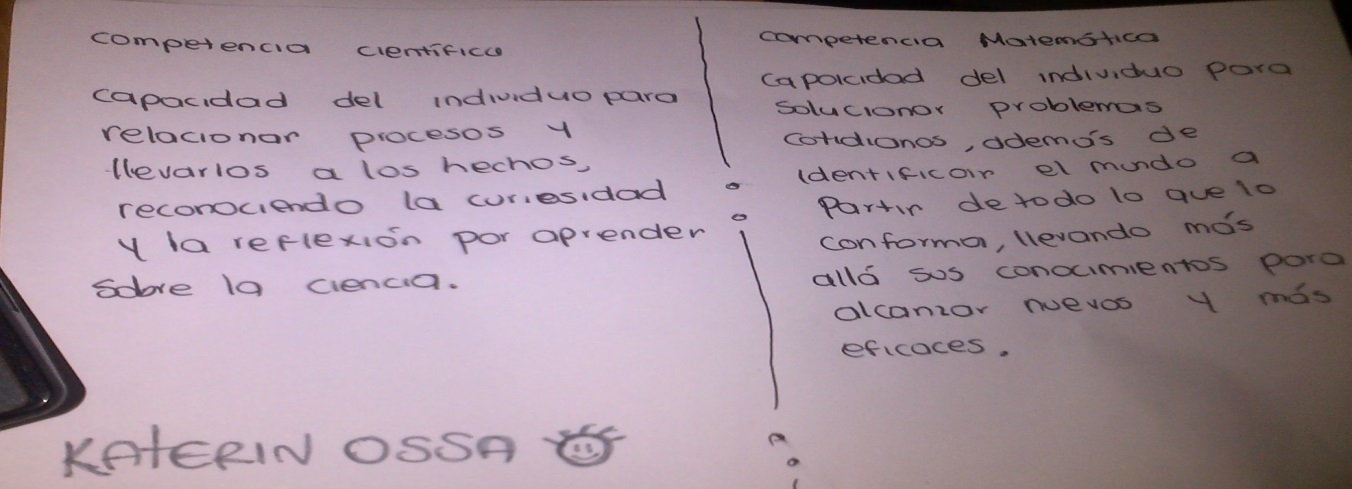 competencia científica
capacidad del individuo para
relacionar procesos y
llevarlos a los hechos,
reconociendo la curiesidad
y la reflexión por aprender
sobre la ciencia.
competencia Matemática
capaicidad del individuo para
solucionar problemas
cotidianos, además de
identificar el mundo a
partir de todo lo que lo
conforma, llevando más
allá sus conocimientos para
alcanzar nuevos y más
eficaces.
KATERIN OSSA